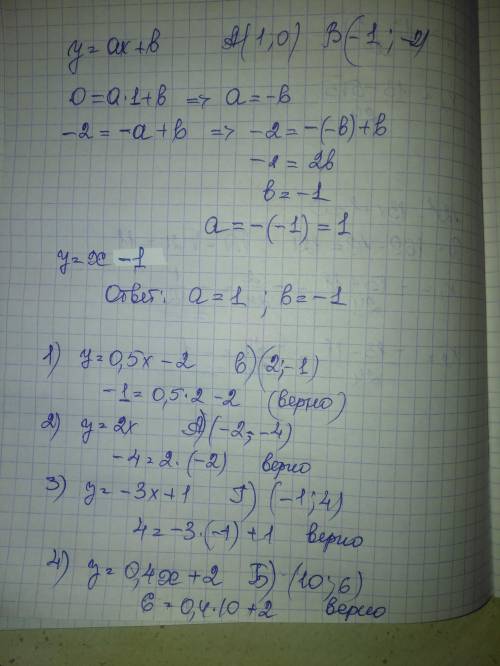 y = ax + b A(1; 0) B(-1; -2)
0 = a·1 + b => a = -b
-2 = -a + b => -2 = -(-b) + b
-2 = 2b
b = -1
a = -(-1) = 1
y = x - 1
Ответ: a = 1 ; b = -1
1) y = 0,5x - 2 В) (2; -1)
-1 = 0,5·2 - 2 (верно)
2) y = 2x А) (-2; -4)
-4 = 2·(-2) верно
3) y = -3x + 1 Г) (-1; 4)
4 = -3·(-1) + 1 верно
4) y = 0,4x + 2 Б) (10; 6)
6 = 0,4·10 + 2 верно